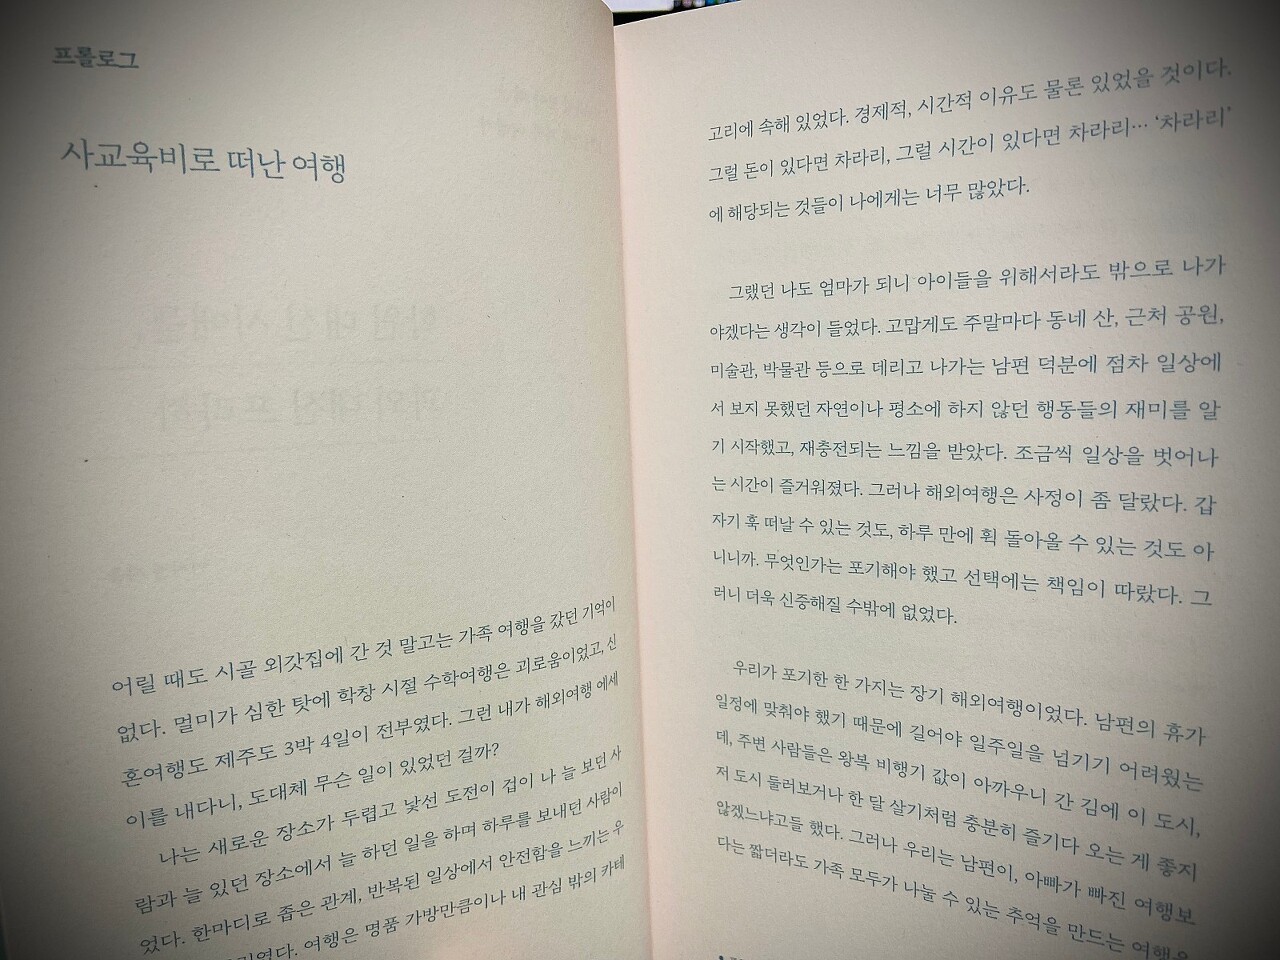 프롤로그
사교육비로 떠난 여행
어릴 때도 시골 외갓집에 간 것 말고는 가족 여행을 갔던 기억이
없다. 멀미가 심한 탓에 학창 시절 수학여행은 괴로움이었고, 신
혼여행도 제주도 3박 4일이 전부였다. 그런 내가 해외여행 에세
이를 내다니, 도대체 무슨 일이 있었던 걸까?
나는 새로운 장소가 두렵고 낯선 도전이 겁이 나 늘 보던 사
람과 늘 있던 장소에서 늘 하던 일을 하며 하루를 보내던 사람이
었다. 한마디로 좁은 관계, 반복된 일상에서 안전함을 느끼는 우
여행은 명품 가방만큼이나 내 관심 밖의 카테
고리에 속해 있었다. 경제적, 시간적 이유도 물론 있었을 것이다.
그럴 돈이 있다면 차라리, 그럴 시간이 있다면 차라리… ‘차라리’
에 해당되는 것들이 나에게는 너무 많았다.
그랬던 나도 엄마가 되니 아이들을 위해서라도 밖으로 나가
야겠다는 생각이 들었다. 고맙게도 주말마다 동네 산, 근처 공원,
미술관, 박물관 등으로 데리고 나가는 남편 덕분에 점차 일상에
서 보지 못했던 자연이나 평소에 하지 않던 행동들의 재미를 알
기 시작했고, 재충전되는 느낌을 받았다. 조금씩 일상을 벗어나
는 시간이 즐거워졌다. 그러나 해외여행은 사정이 좀 달랐다. 갑
자기 훅 떠날 수 있는 것도, 하루 만에 획 돌아올 수 있는 것도 아
니니까. 무엇인가는 포기해야 했고 선택에는 책임이 따랐다. 그
러니 더욱 신중해질 수밖에 없었다.
우리가 포기한 한 가지는 장기 해외여행이었다. 남편의 휴가
일정에 맞춰야 했기 때문에 길어야 일주일을 넘기기 어려웠는
데, 주변 사람들은 왕복 비행기 값이 아까우니 간 김에 이 도시,
저 도시 둘러보거나 한 달 살기처럼 충분히 즐기다 오는 게 좋지
않겠느냐고들 했다. 그러나 우리는 남편이, 아빠가 빠진 여행보
다는 짧더라도 가족 모두가 나눌 수 있는 추억을 만드는 여행을